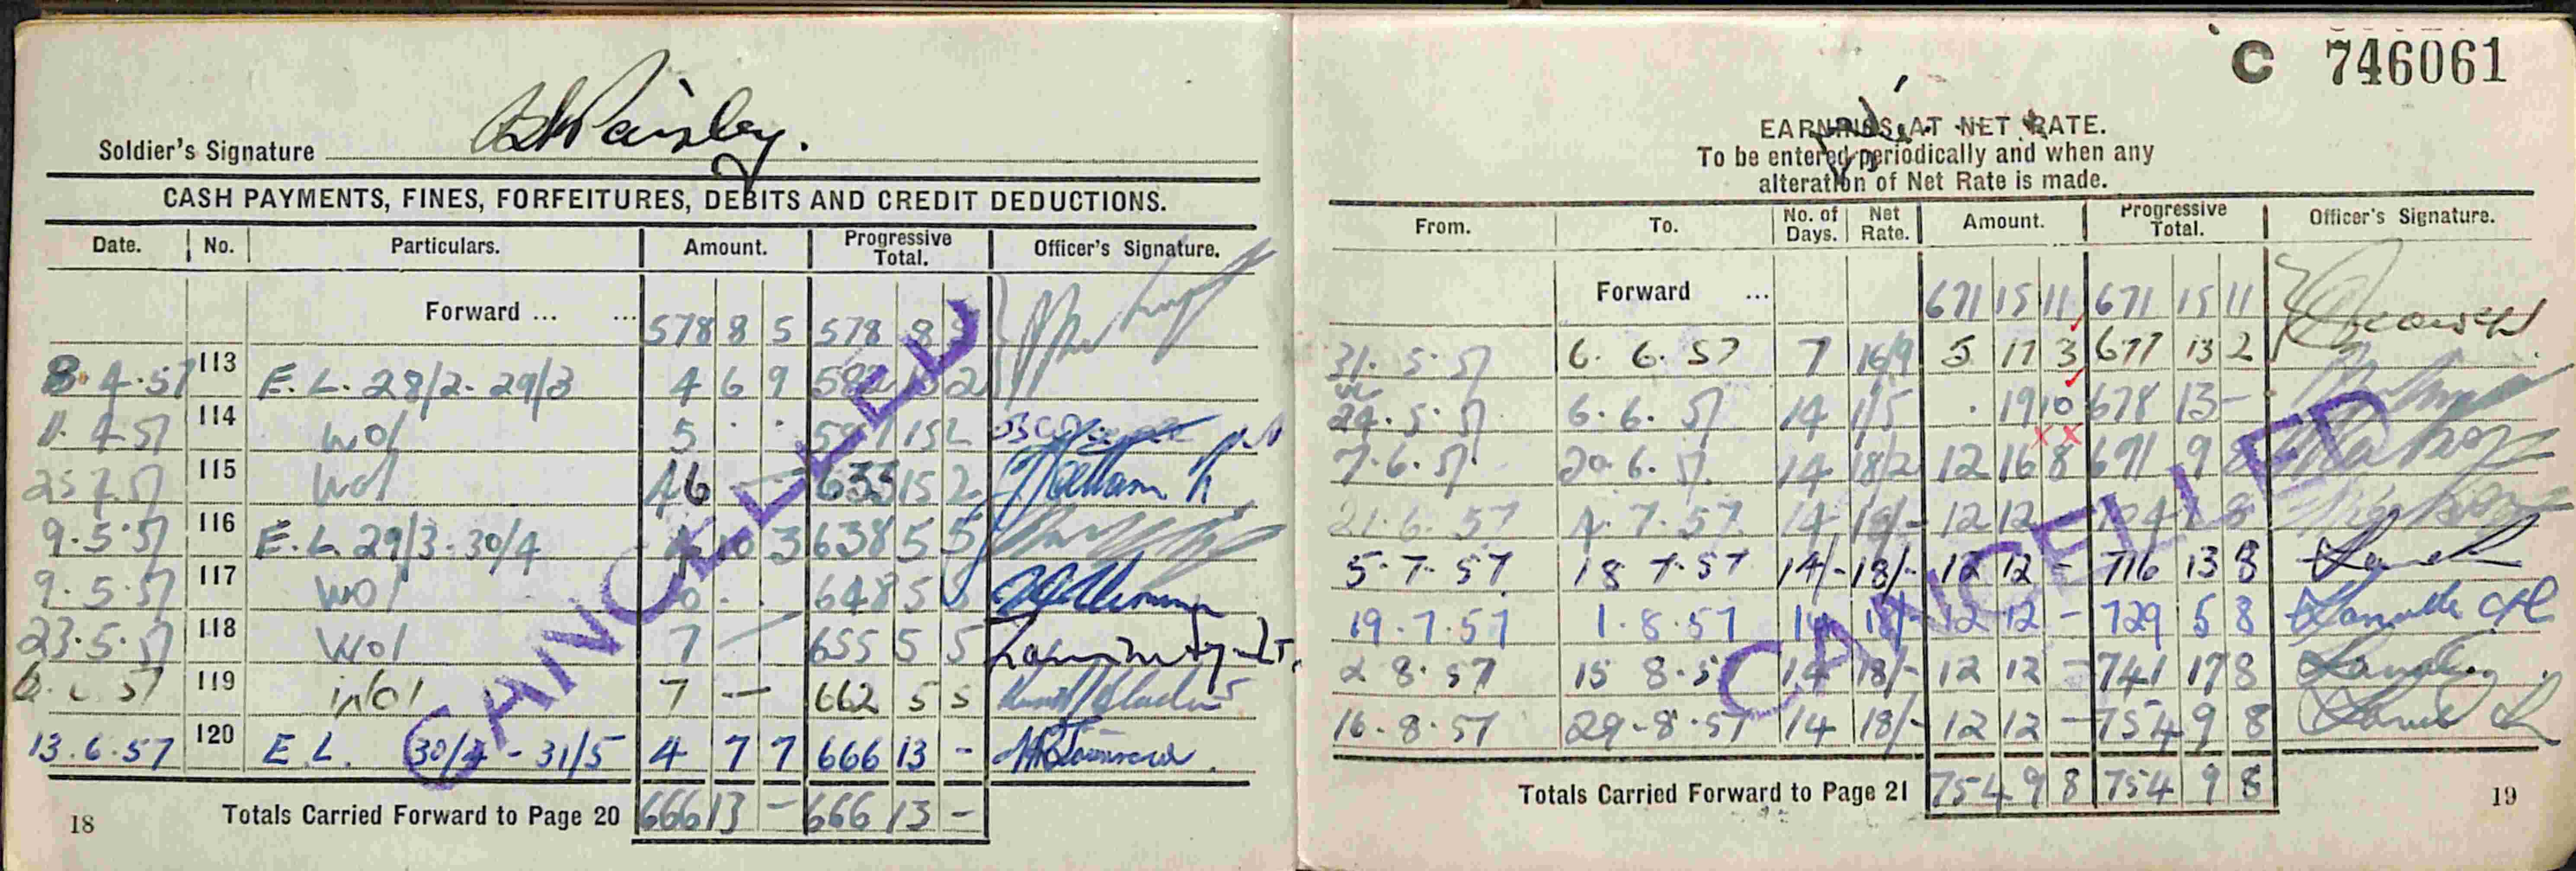 Soldier's Signature Paisley.
CASH PAYMENTS, FINES, FORFEITURES, DEBITS AND CREDIT DEDUCTIONS.
Date. No. Particulars. Amount. Progressive Total. Officer's Signature.
Forward ... ... 578 8 5 578 8 5
8.4.57 113 E.L. 28/2 - 29/3 4 6 9 582 2
11.4.57 114 Wol 5 . . 15 2
115 Wol 46 - - 633 15 2
9.5.57 116 E.L. 29/3 - 30/4 4 10 3 638 5 5
9.5.57 117 Wol . . 648 5 5
23.5.57 118 Wol 7 655 5 5
57 119 Wol 7 — 662 5 5
13.6.57 120 E.L. 30/4 - 31/5 4 7 7 666 13 -
Totals Carried Forward to Page 20 666 13 - 666 13 -
18
CANCELLED
C 746061
EARNINGS AT NET RATE.
To be entered periodically and when any
alteration of Net Rate is made.
From. To. No. of Days. Net Rate. Amount. Progressive Total. Officer's Signature.
Forward ... 671 15 11 671 15 11
31.5.57 6.6.57 7 16/9 5 17 3 677 13 2
24.5.57 6.6.57 14 1/5 . 19 10 678 13 -
7.6.57 20.6.57 14 18/2 12 16 8 691 9 8
21.6.57 4.7.57 14 18/- 12 12 704 1 8
5.7.57 18.7.57 14/- 18/- 12 12 - 716 13 8
19.7.57 1.8.57 14 18/- 12 12 - 729 5 8
2.8.57 15.8.57 14 18/- 12 12 - 741 17 8
16.8.57 29.8.57 14 18/- 12 12 - 754 9 8
Totals Carried Forward to Page 21 754 9 8 754 9 8
19
CANCELLED